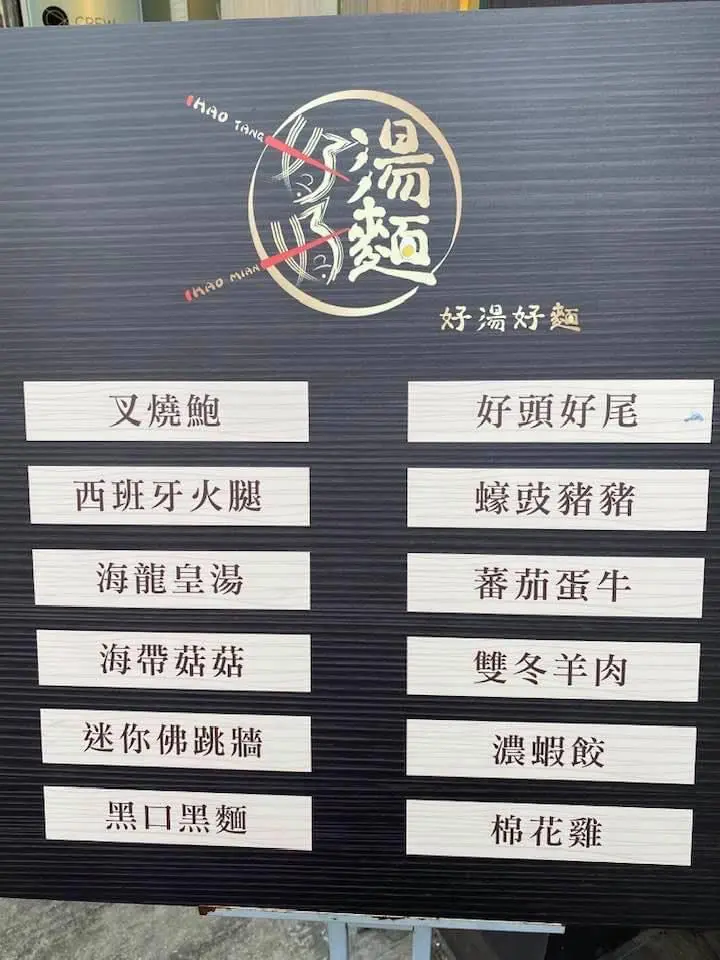 CREW
HAO TANG
好湯
好麵
HAO MIAN
好湯好麵
叉燒鮑
西班牙火腿
海龍皇湯
海帶菇菇
迷你佛跳牆
黑口黑麵
好頭好尾
蠔豉豬豬
蕃茄蛋牛
雙冬羊肉
濃蝦餃
棉花雞